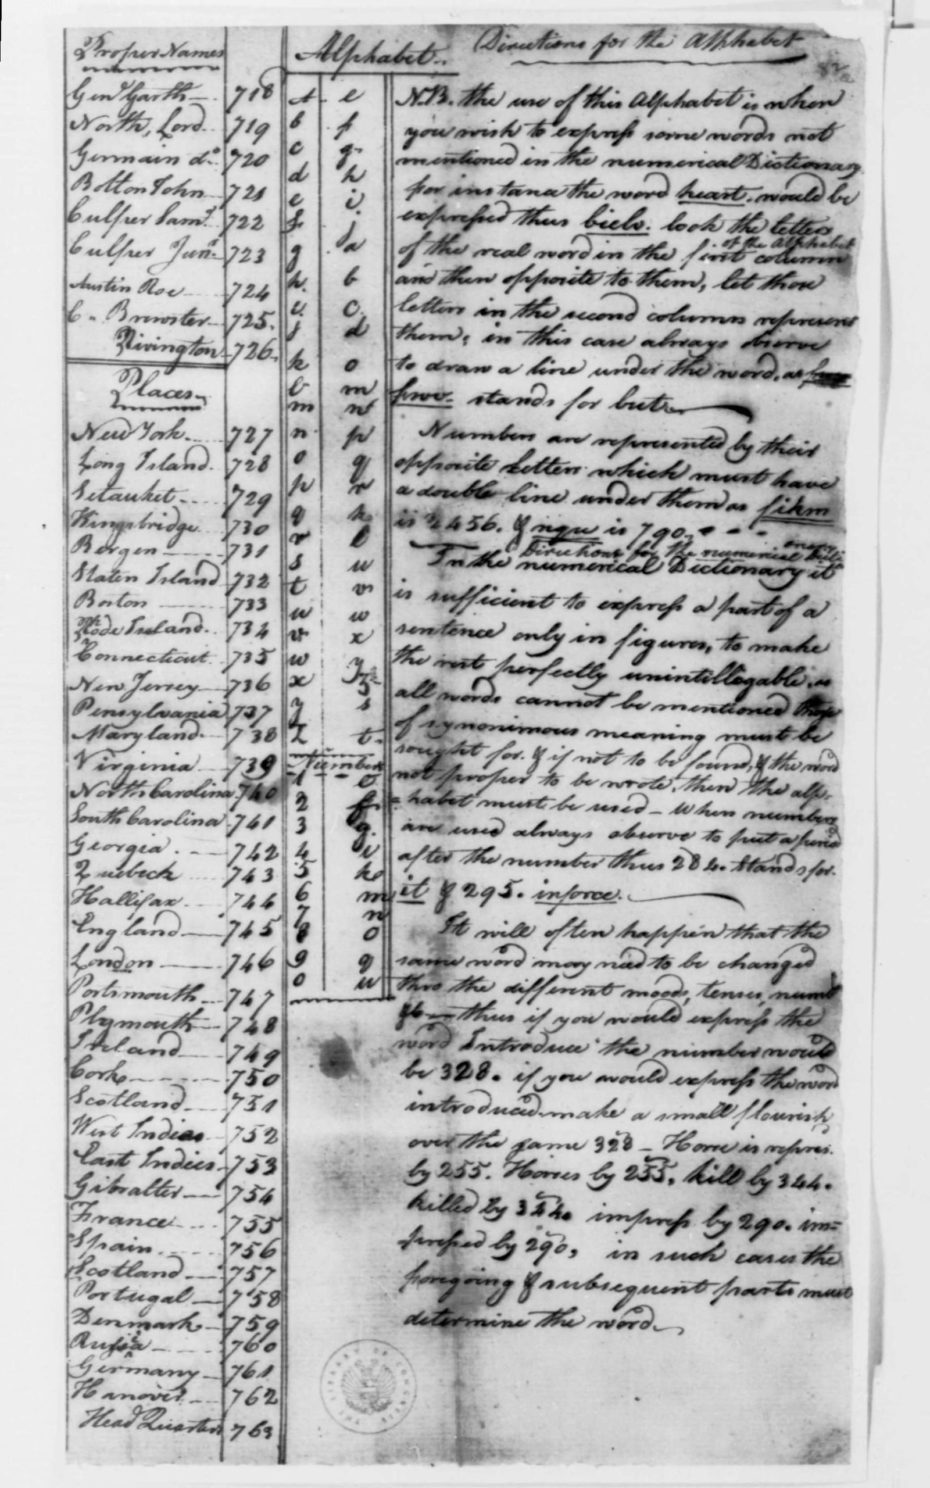 Proper Names
Gen.l Garth 718
North, Lord 719
Germain do. 720
Bolton John 721
Culper Sam.l 722
Culper Jun.r 723
Austin Roe 724
C. Brewster 725.
Rivington 726.
Places
New York 727
Long Island 728
Setauket 729
Kingsbridge 730
Bergen 731
Staten Island 732
Boston 733
Rhode Island 734
Connecticut 735
New Jersey 736
Pensylvania 737
Maryland 738
Virginia 739
North Carolina 740
South Carolina 741
Georgia 742
Quebeck 743
Hallifax 744
England 745
London 746
Portsmouth 747
Plymouth 748
Ireland 749
Cork 750
Scotland 751
West Indies 752
East Indies 753
Gibralter 754
France 755
Spain 756
Scotland 757
Portugal 758
Denmark 759
Russia 760
Germany 761
Hanover 762
Head Quarters 763
Alphabet
a e
b f
c g
d h
e i
f j
g a
h b
i c
j d
k o
l m
m n
n p
o q
p r
q k
r l
s u
t v
u w
v x
w y
x z
y s
z t
Numbers
1 e
2 f
3 g
4 i
5 k
6 m
7 n
8 o
9 q
0 u
Directions for the Alphabet
N.B. the use of this Alphabet is when
you wish to express some words not
mentioned in the numerical Dictionary
for instance the word heart. would be
expressed thus bielv. look the letters
of the real word in the first column
of the Alphabet
and then opposite to them, let those
letters in the second column represent
them, in this case always observe
to draw a line under the word, as
fwv. stands for but
Numbers are represented by their
opposite letters which must have
a double line under them as fikm
is 2456. & nqu is 790.
Directions for the numerical Dictionary
In the numerical Dictionary it
is sufficient to express a part of a
sentence only in figures, to make
the rest perfectly unintellegable. as
all words cannot be mentioned those
of synonimous meaning must be
sought for. & if not to be found, & the word
not proper to be wrote, then the alp-
habet must be used – When numbers
are used always observe to put a period
after the number thus 284. stands for
it & 295. inforce.
It will often happen that the
same word may need to be changed
thro the different moods, tenses, numb
thus if you would express the
word Introduce the number would
be 328. if you would express the word
introduced make a small flourish
over the same 328 – Horse is repres.
by 255. Horses by 255, kill by 344.
killed by 344. impress by 290. im=
pressed by 290, in such cases the
foregoing & subsequent parts must
determine the word.